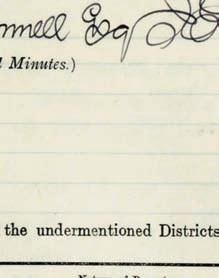 nnell Esq
Minutes.)
the undermentioned Districts